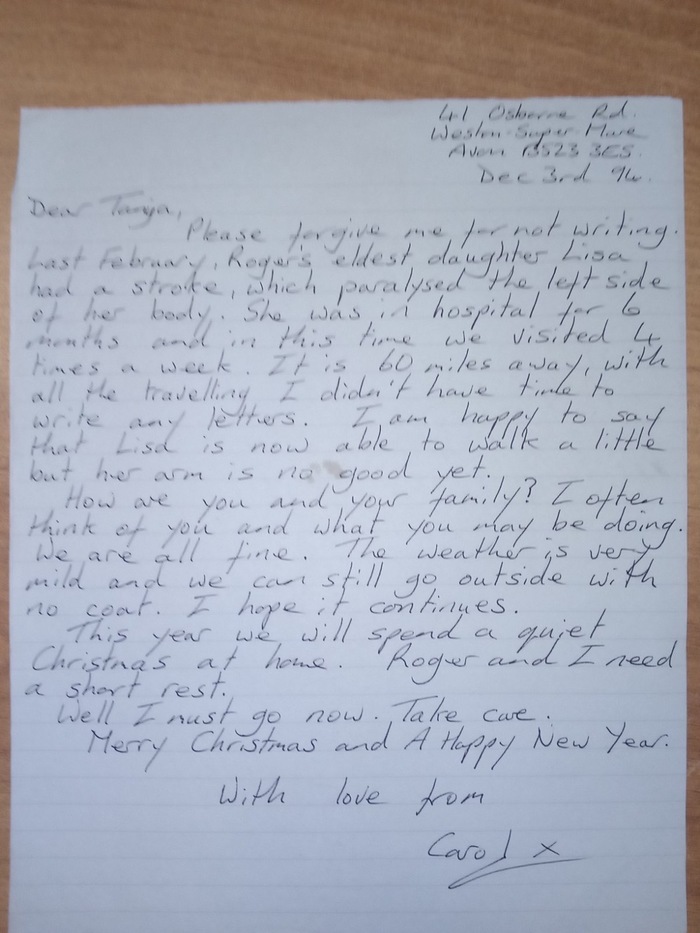 41 Osborne Rd.
Weston-Super-Mare
Avon BS23 3ES.
Dec 3rd 94.
Dear Tanja,
Please forgive me for not writing.
Last February, Roger's eldest daughter Lisa
had a stroke, which paralysed the left side
of her body. She was in hospital for 6
months and in this time we visited 4
times a week. It is 60 miles away, with
all the travelling I didn't have time to
write any letters. I am happy to say
that Lisa is now able to walk a little
but her arm is no good yet.
How are you and your family? I often
think of you and what you may be doing.
We are all fine. The weather is very
mild and we can still go outside with
no coat. I hope it continues.
This year we will spend a quiet
Christmas at home. Roger and I need
a short rest.
Well I must go now. Take care.
Merry Christmas and A Happy New Year.
With love from
Carol x